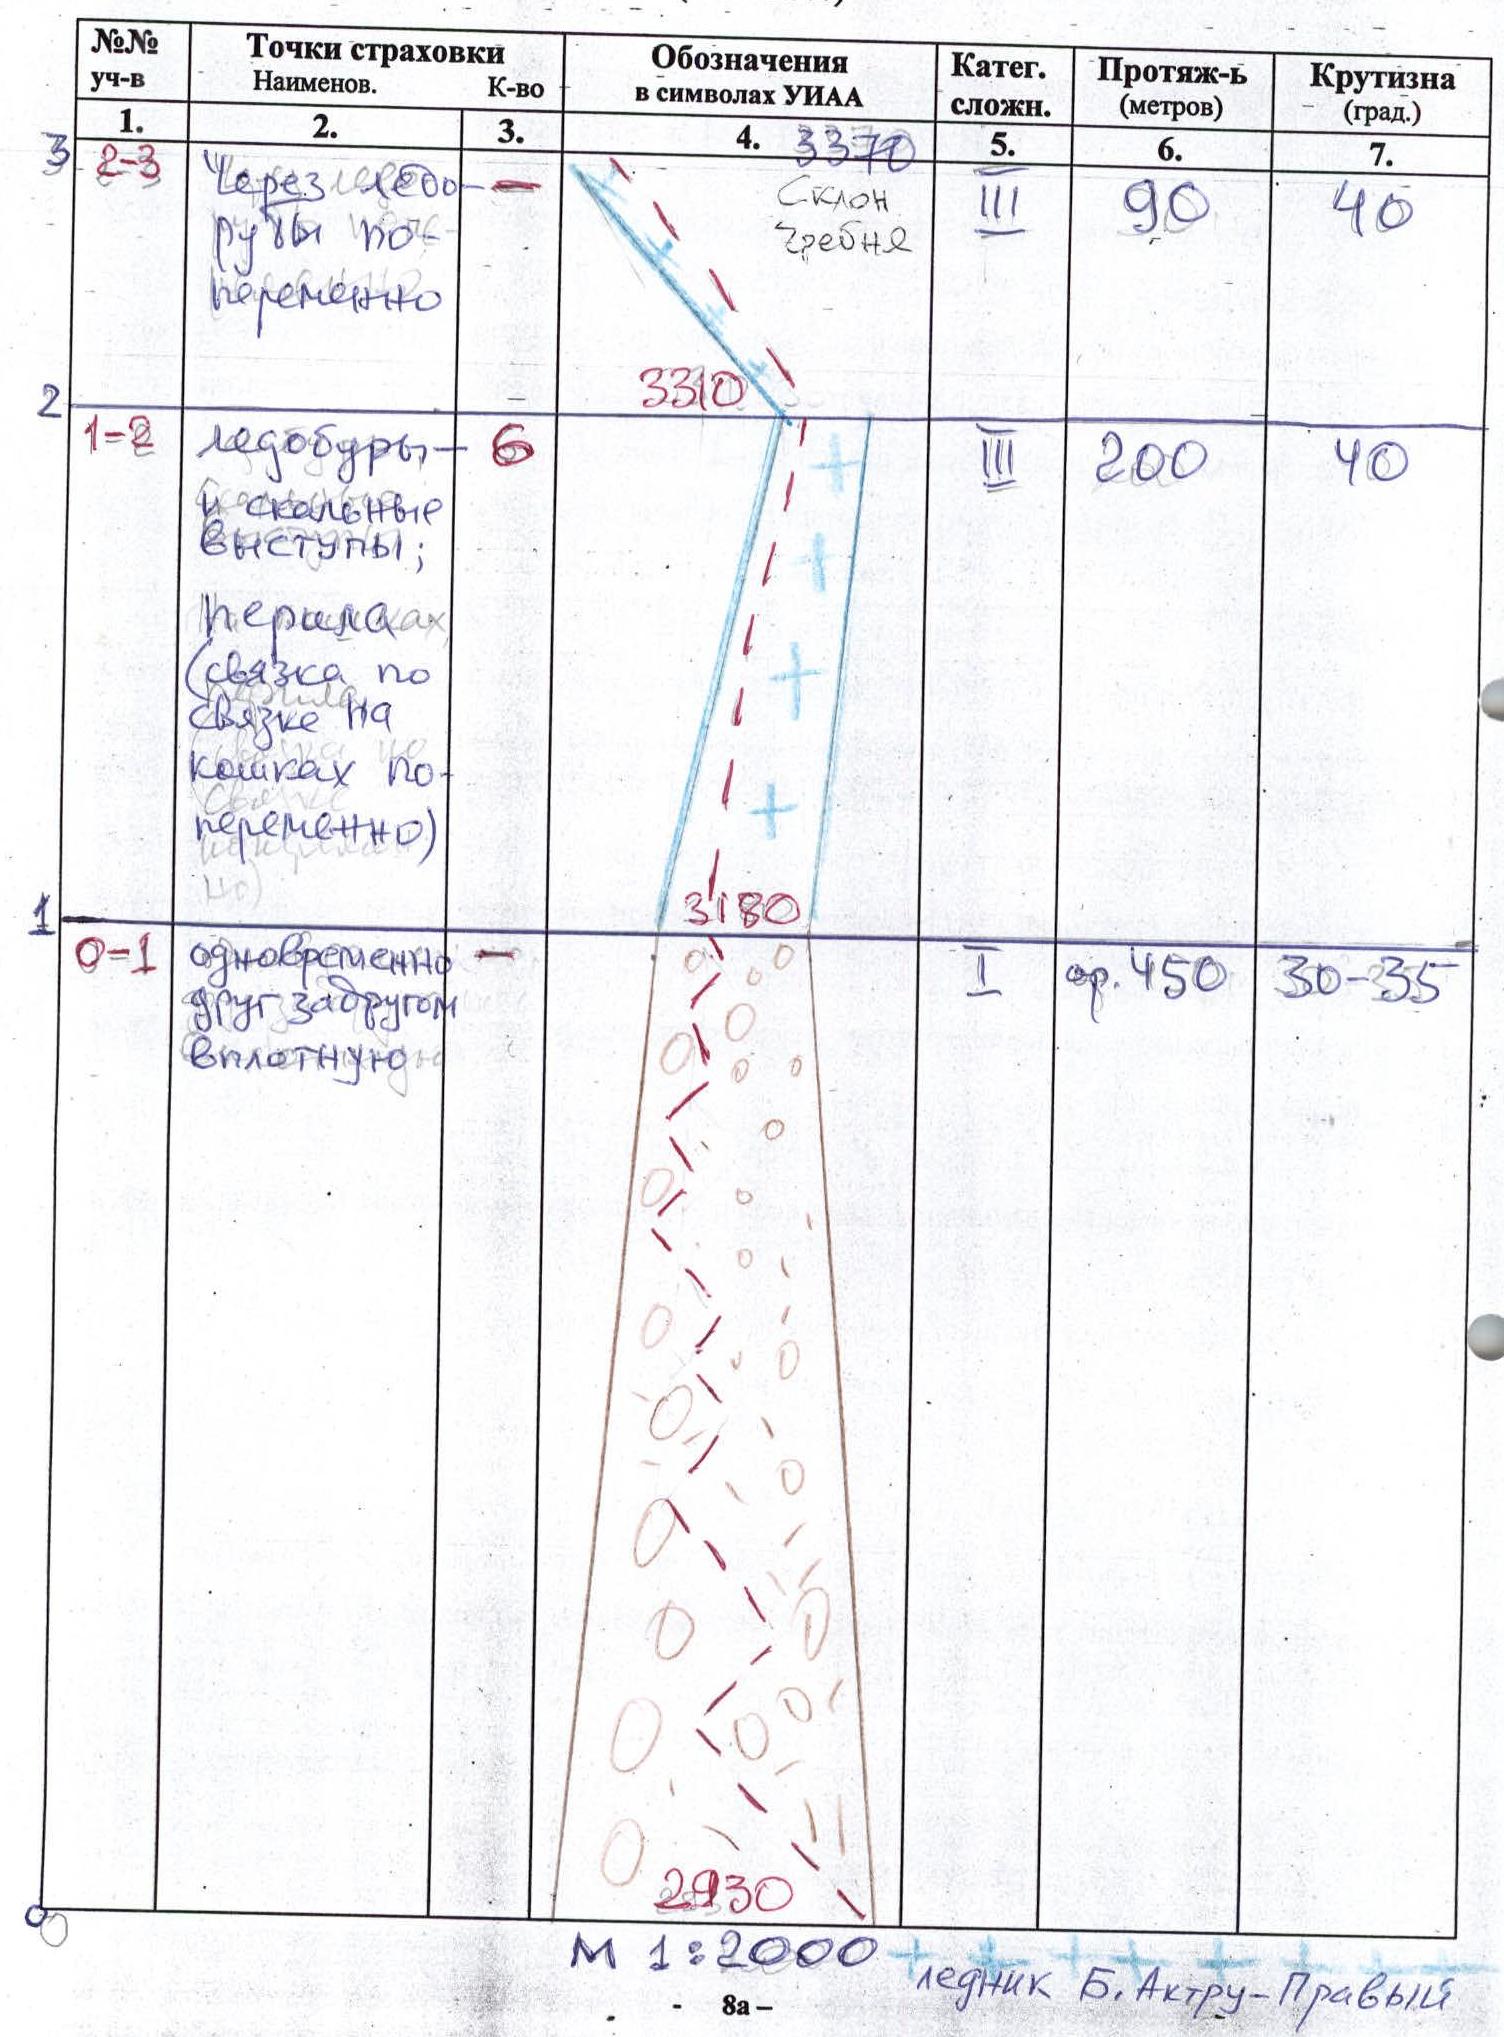 №№ уч-в
Точки страховки
Наименов. К-во
Обозначения
в символах УИАА
Катег.
сложн.
Протяж-ь
(метров)
Крутизна
(град.)
1. 2. 3. 4. 5. 6. 7.
3
3370
2-3
Через ледо-
рубы по-
переменно
—
Склон
гребня
III
90
40
3310
2
1-2
ледобуры,—
и скальные
выступы;
перила
(связка по
связке на
кошках по-
переменно)
6
III
200
40
3180
1
0-1
одновременно
друг за другом
вплотную
—
I
ор. 450
30-35
2930
0
М 1:2000
ледник Б. Актру-Правый
- 8а –